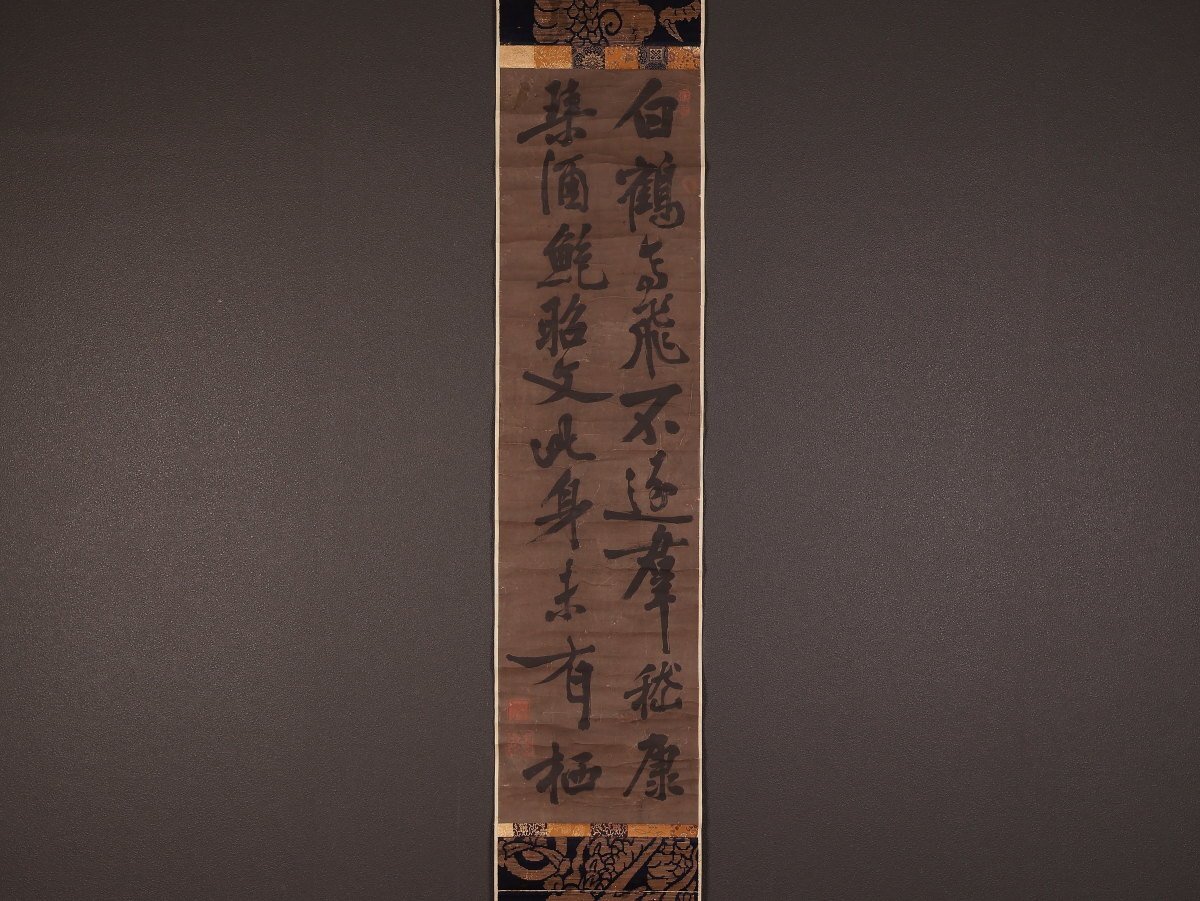 白鶴高飛不逐羣嵇康
琹酒鮑昭文此身未有栖